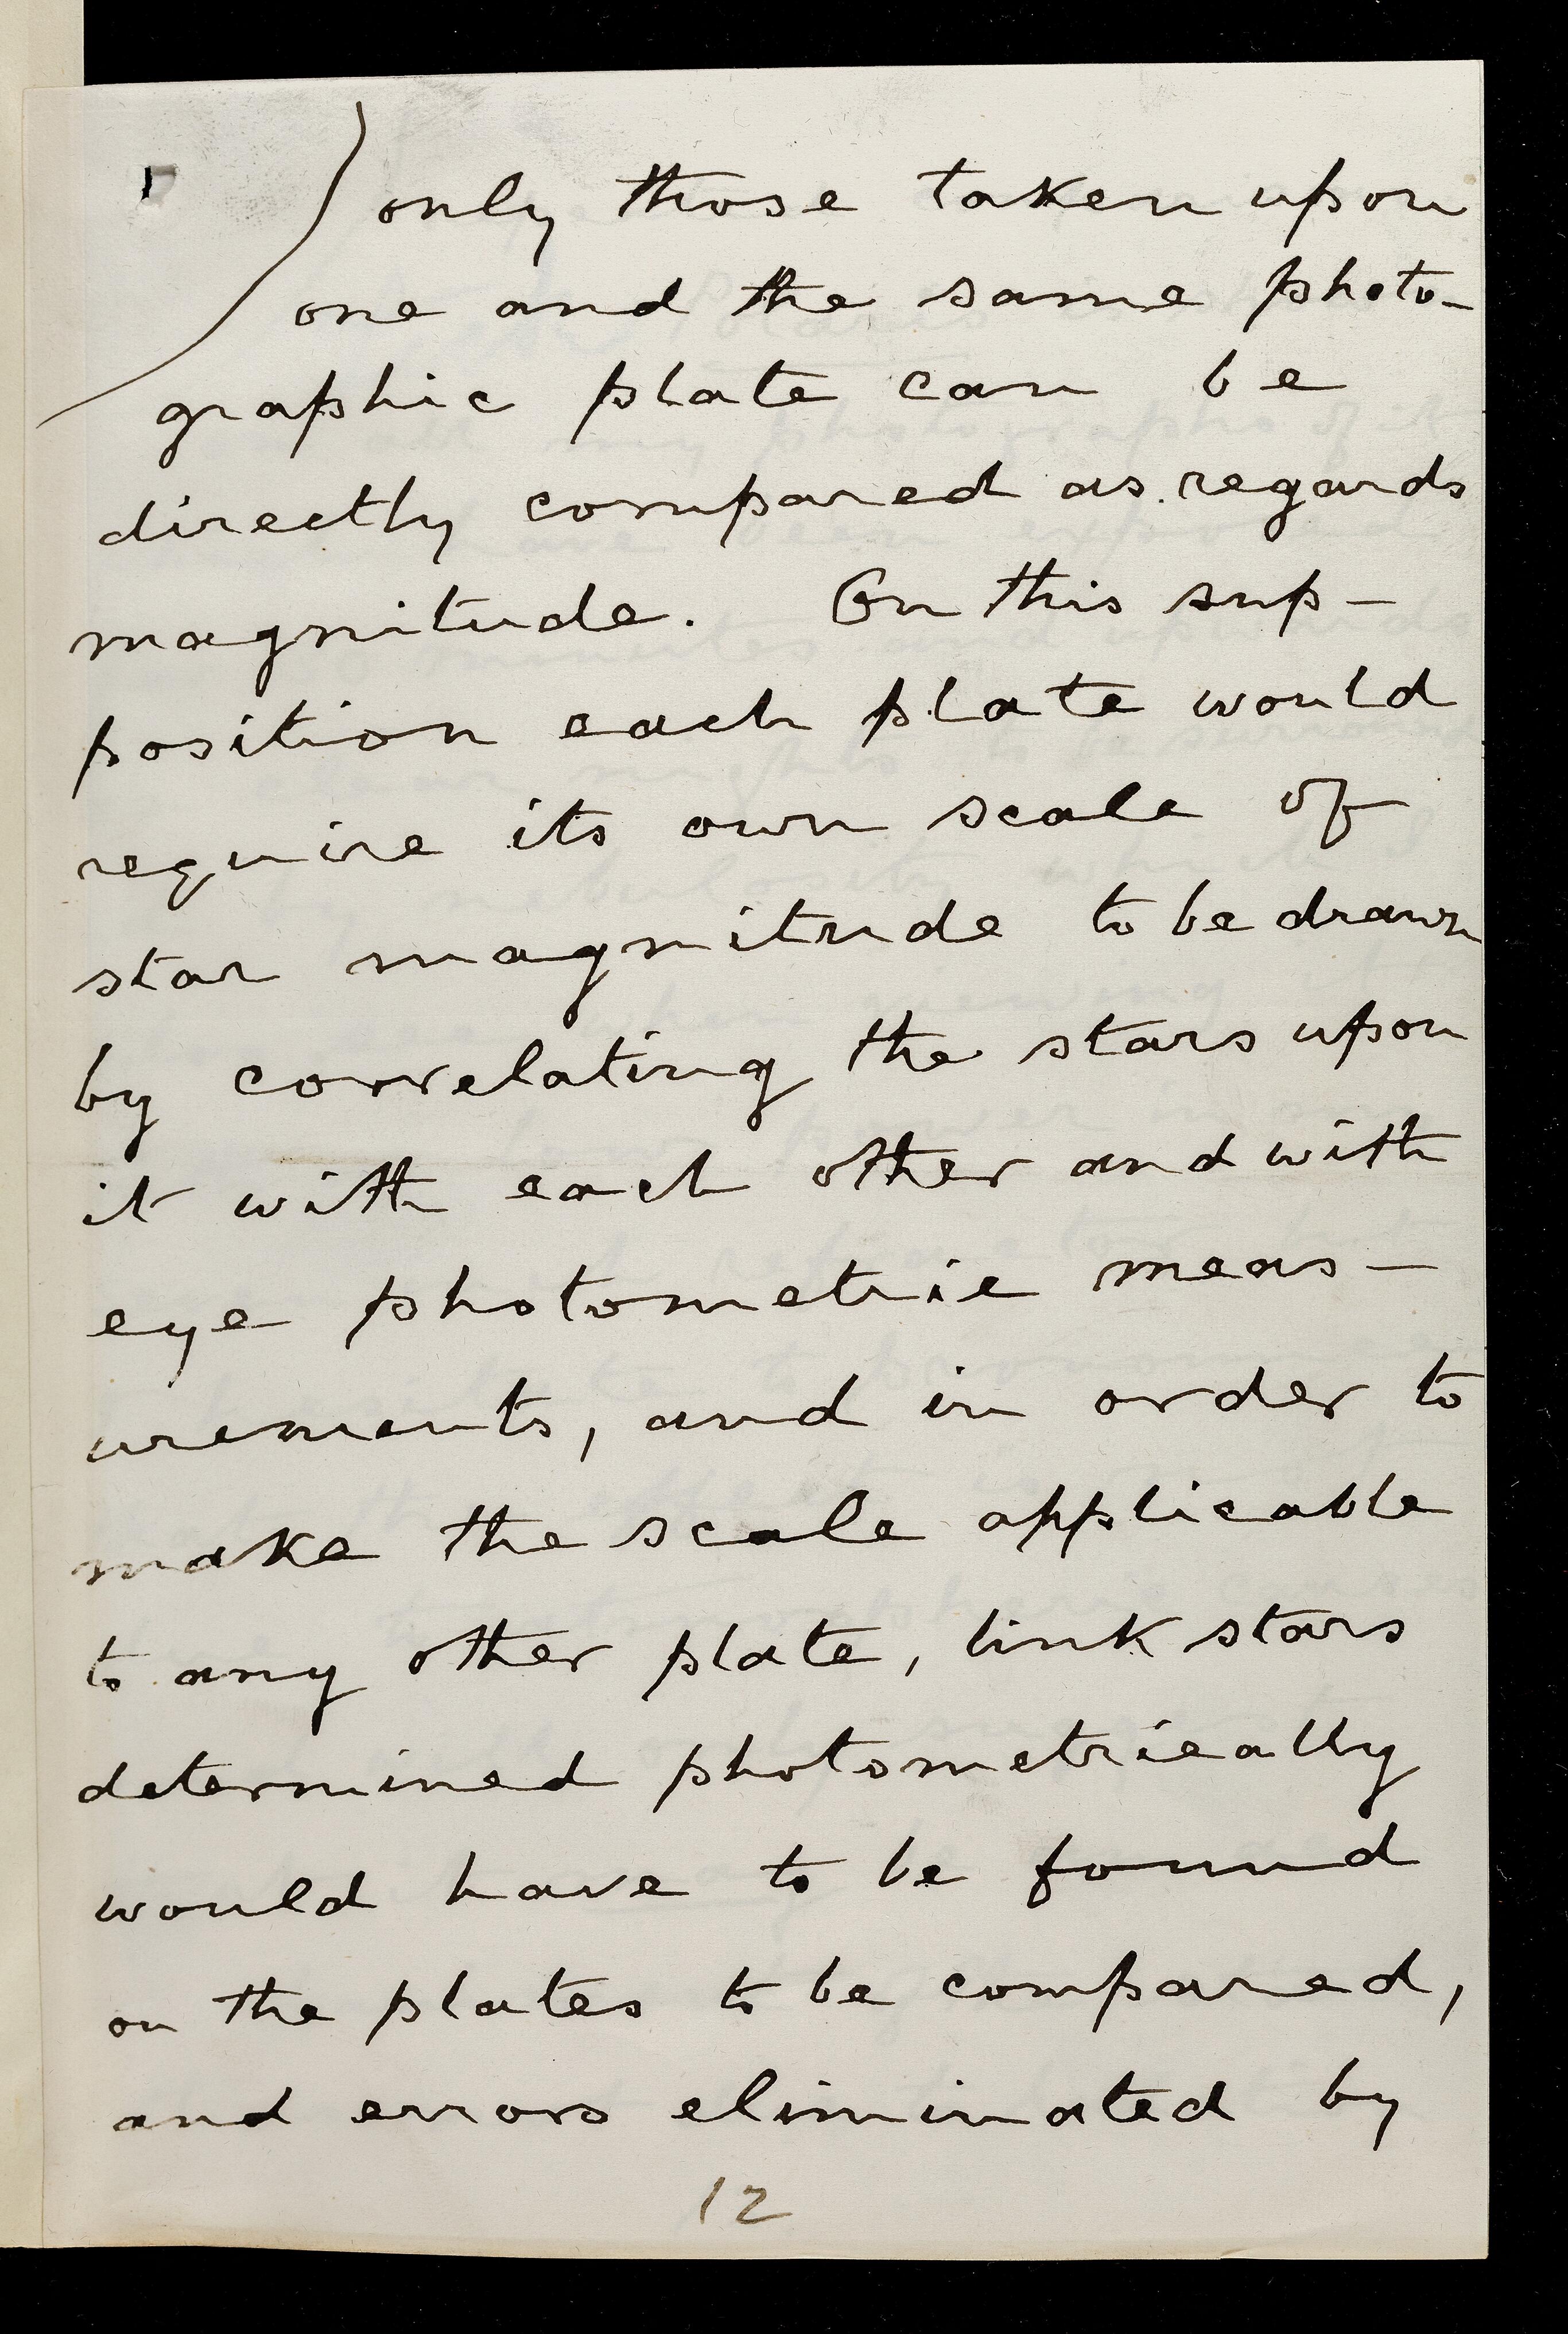 only those taken upon
one and the same photo-
graphic plate can be
directly compared as regards
magnitude. On this sup-
position each plate would
require its own scale of
star magnitude to be drawn
by correlating the stars upon
it with each other and with
eye photometric meas-
urements, and in order to
make the scale applicable
to any other plate, link stars
determined photometrically
would have to be found
on the plates to be compared,
and errors eliminated by
12